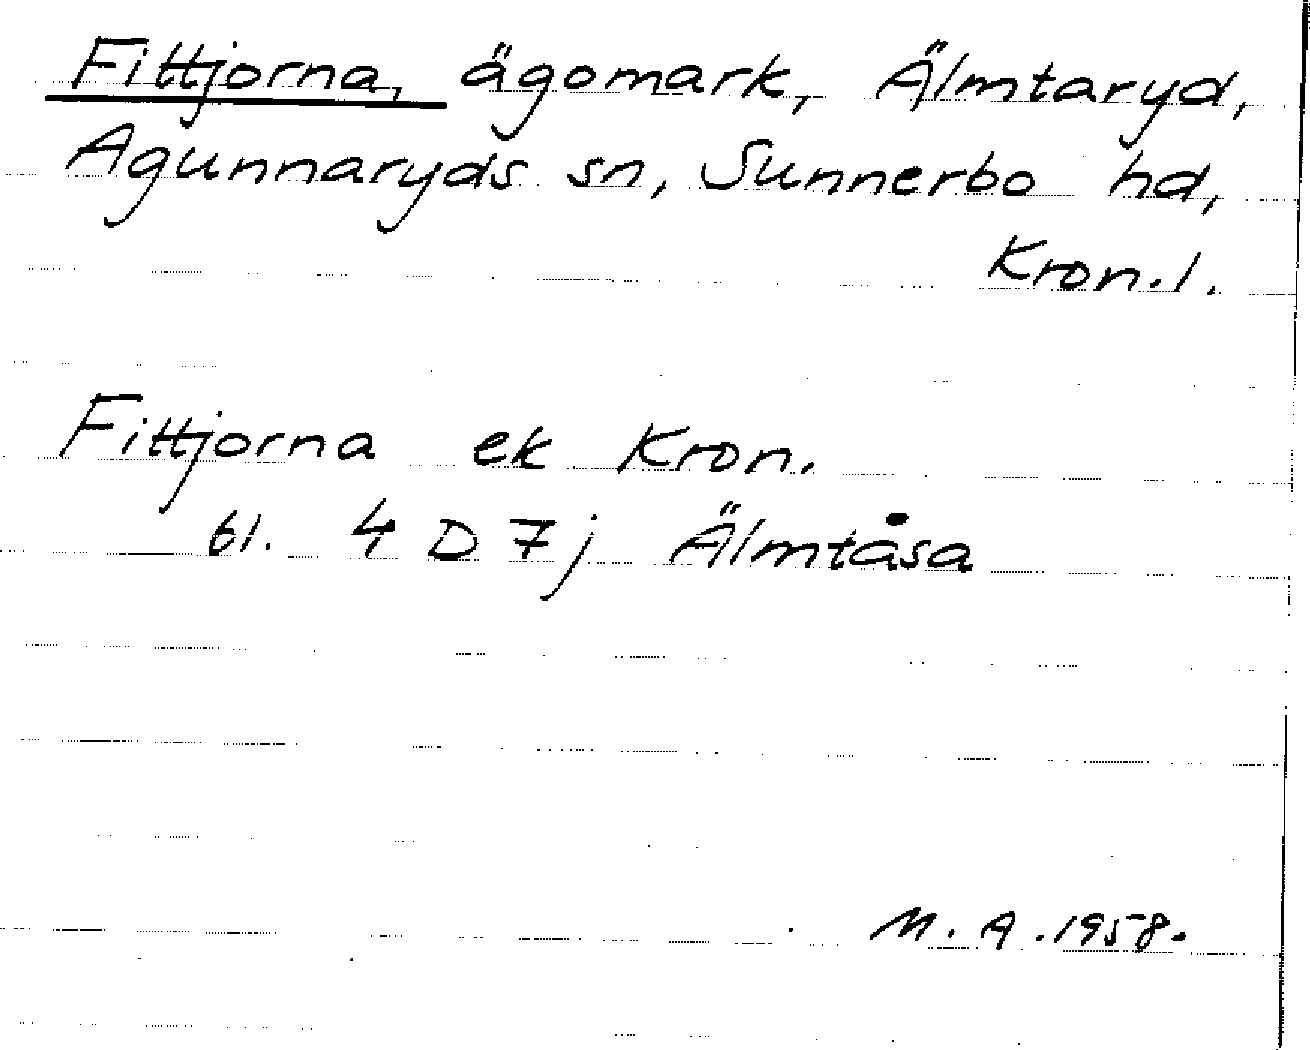 Fittjorna, ägomark, Älmtaryd,
Agunnaryds sn, Sunnerbo hd,
Kron.l.
Fittjorna ek Kron.
bl. 4 D 7j Älmtåsa
M. A. 1958.